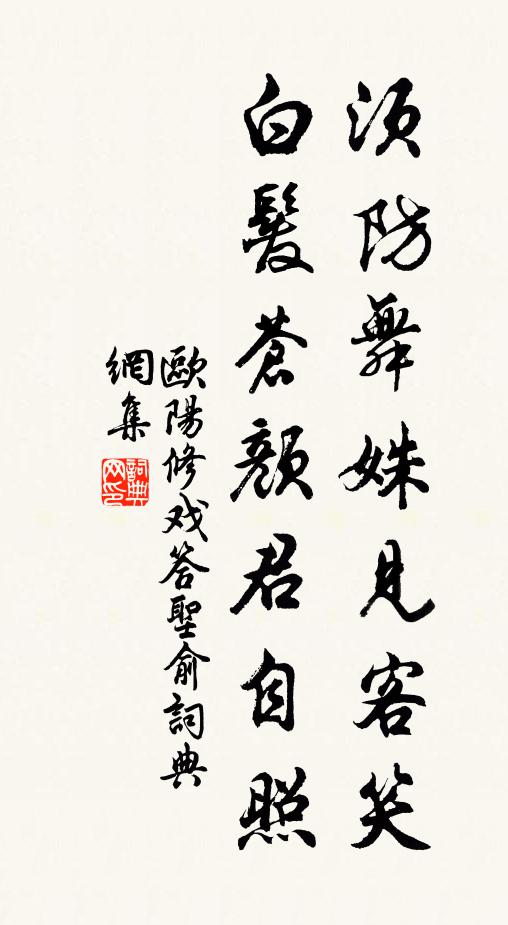 須防舞姝見客笑
白髮蒼顏君自照
歐陽修戏答聖俞詞典
網集
詞典
网印